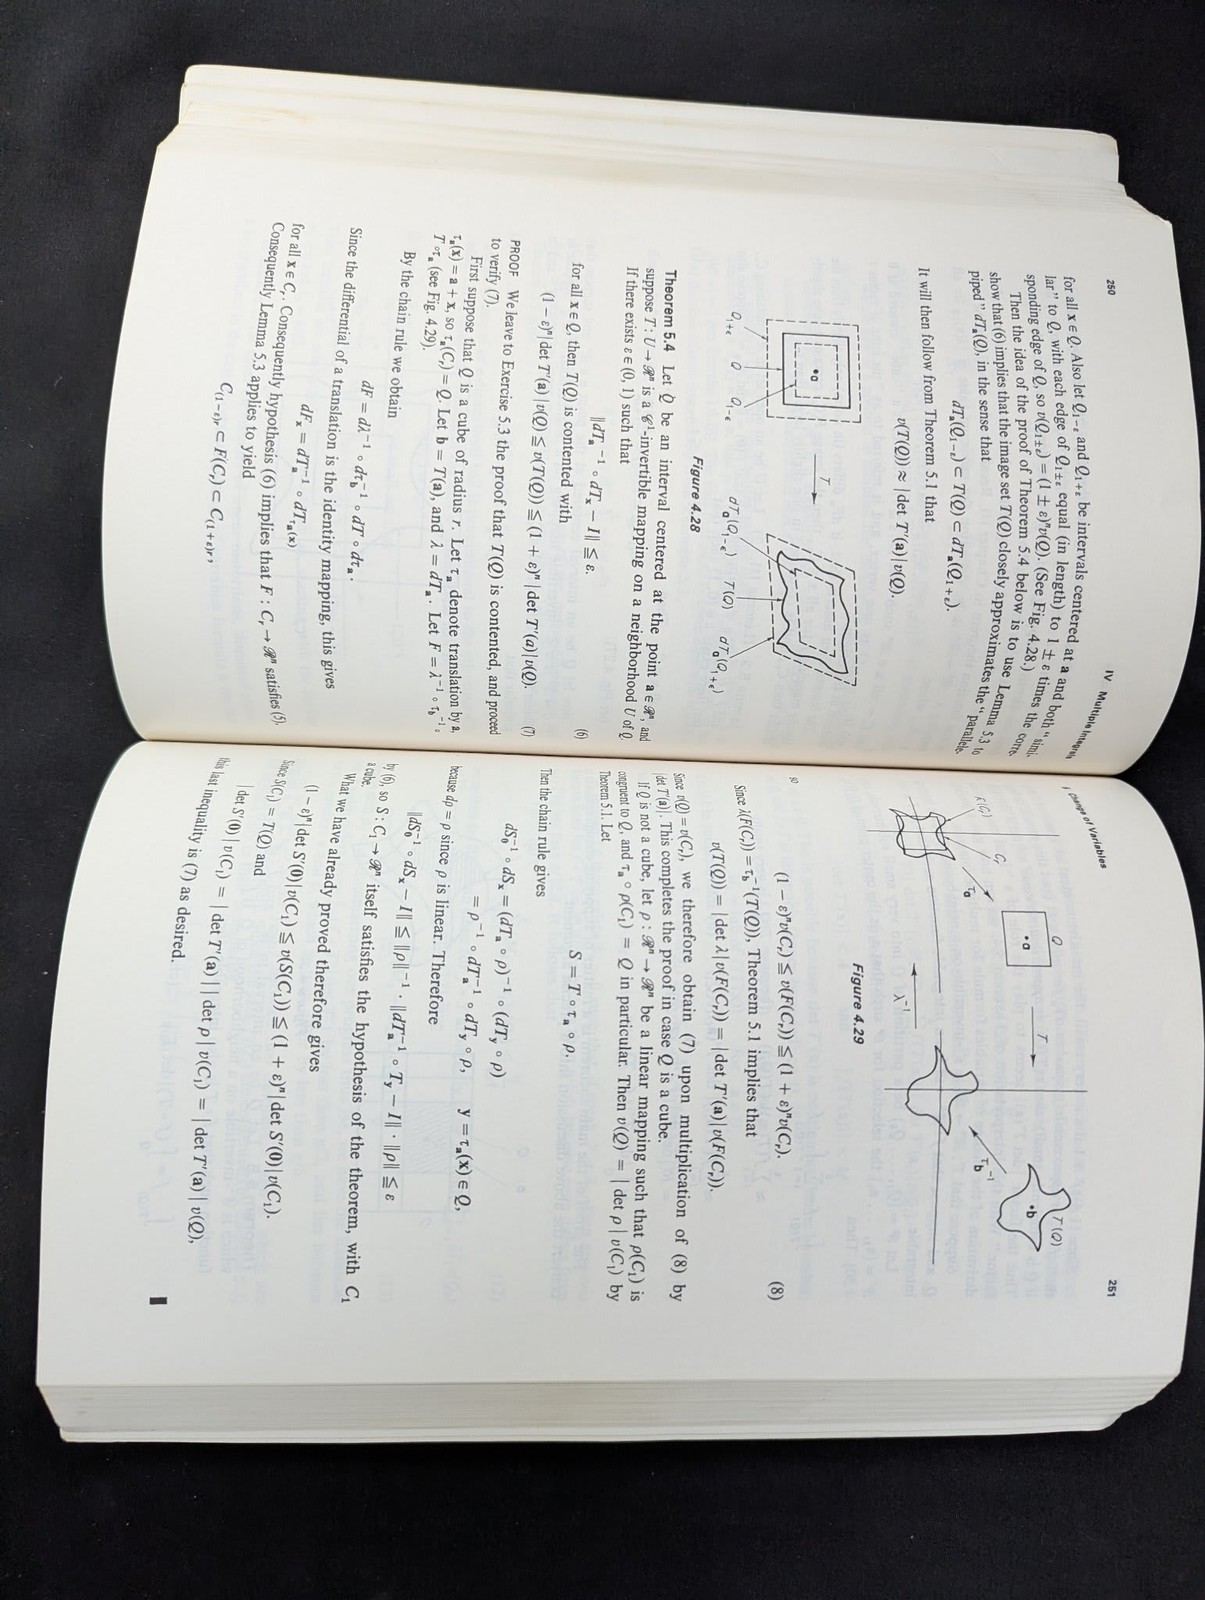 250
IV Multiple Integrals
for all x ∈ Q. Also let Q₁₋ε and Q₁₊ε be intervals centered at a and both "simi-
lar" to Q, with each edge of Q₁±ε equal (in length) to 1 ± ε times the corre-
sponding edge of Q, so v(Q₁±ε) = (1 ± ε)ⁿv(Q). (See Fig. 4.28.)
Then the idea of the proof of Theorem 5.4 below is to use Lemma 5.3 to
show that (6) implies that the image set T(Q) closely approximates the "parallele-
piped" dTₐ(Q), in the sense that
dTₐ(Q₁₋ε) ⊂ T(Q) ⊂ dTₐ(Q₁₊ε).
It will then follow from Theorem 5.1 that
v(T(Q)) ≈ |det T′(a)|v(Q).
a
T
Q₁₊ε Q Q₁₋ε
dTₐ(Q₁₋ε) T(Q) dTₐ(Q₁₊ε)
Figure 4.28
Theorem 5.4 Let Q be an interval centered at the point a ∈ ℛⁿ, and
suppose T : U → ℛⁿ is a 𝒞¹-invertible mapping on a neighborhood U of Q.
If there exists ε ∈ (0, 1) such that
‖dTₐ⁻¹ ∘ dTₓ − I‖ ≦ ε. (6)
for all x ∈ Q, then T(Q) is contented with
(1 − ε)ⁿ|det T′(a)|v(Q) ≦ v(T(Q)) ≦ (1 + ε)ⁿ|det T′(a)|v(Q). (7)
PROOF We leave to Exercise 5.3 the proof that T(Q) is contented, and proceed
to verify (7).
First suppose that Q is a cube of radius r. Let τₐ denote translation by a,
τₐ(x) = a + x, so τₐ(Cᵣ) = Q. Let b = T(a), and λ = dTₐ. Let F = λ⁻¹ ∘ τ_b⁻¹ ∘
T ∘ τₐ (see Fig. 4.29).
By the chain rule we obtain
dF = dλ⁻¹ ∘ dτ_b⁻¹ ∘ dT ∘ dτₐ.
Since the differential of a translation is the identity mapping, this gives
dFₓ = dTₐ⁻¹ ∘ dT_τₐ(x)
for all x ∈ Cᵣ. Consequently hypothesis (6) implies that F : Cᵣ → ℛⁿ satisfies (5).
Consequently Lemma 5.3 applies to yield
C₍₁₋ε₎ᵣ ⊂ F(Cᵣ) ⊂ C₍₁₊ε₎ᵣ,
Change of Variables
251
Q
a
T
T(Q)
b
F(Cᵣ)
Cᵣ
τₐ
τ_b⁻¹
λ⁻¹
Figure 4.29
so
(1 − ε)ⁿv(Cᵣ) ≦ v(F(Cᵣ)) ≦ (1 + ε)ⁿv(Cᵣ). (8)
Since λ(F(Cᵣ)) = τ_b⁻¹(T(Q)), Theorem 5.1 implies that
v(T(Q)) = |det λ|v(F(Cᵣ)) = |det T′(a)|v(F(Cᵣ)).
Since v(Q) = v(Cᵣ), we therefore obtain (7) upon multiplication of (8) by
|det T′(a)|. This completes the proof in case Q is a cube.
If Q is not a cube, let ρ : ℛⁿ → ℛⁿ be a linear mapping such that ρ(C₁) is
congruent to Q, and τₐ ∘ ρ(C₁) = Q in particular. Then v(Q) = |det ρ|v(C₁) by
Theorem 5.1. Let
S = T ∘ τₐ ∘ ρ.
Then the chain rule gives
dS₀⁻¹ ∘ dSₓ = (dTₐ ∘ ρ)⁻¹ ∘ (dT_y ∘ ρ)
= ρ⁻¹ ∘ dTₐ⁻¹ ∘ dT_y ∘ ρ, y = τₐ(x) ∈ Q,
because dρ = ρ since ρ is linear. Therefore
‖dS₀⁻¹ ∘ dSₓ − I‖ ≦ ‖ρ‖⁻¹ · ‖dTₐ⁻¹ ∘ T_y − I‖ · ‖ρ‖ ≦ ε
by (6), so S : C₁ → ℛⁿ itself satisfies the hypothesis of the theorem, with C₁
a cube.
What we have already proved therefore gives
(1 − ε)ⁿ|det S′(0)|v(C₁) ≦ v(S(C₁)) ≦ (1 + ε)ⁿ|det S′(0)|v(C₁).
Since S(C₁) = T(Q) and
|det S′(0)|v(C₁) = |det T′(a)||det ρ|v(C₁) = |det T′(a)|v(Q),
this last inequality is (7) as desired.